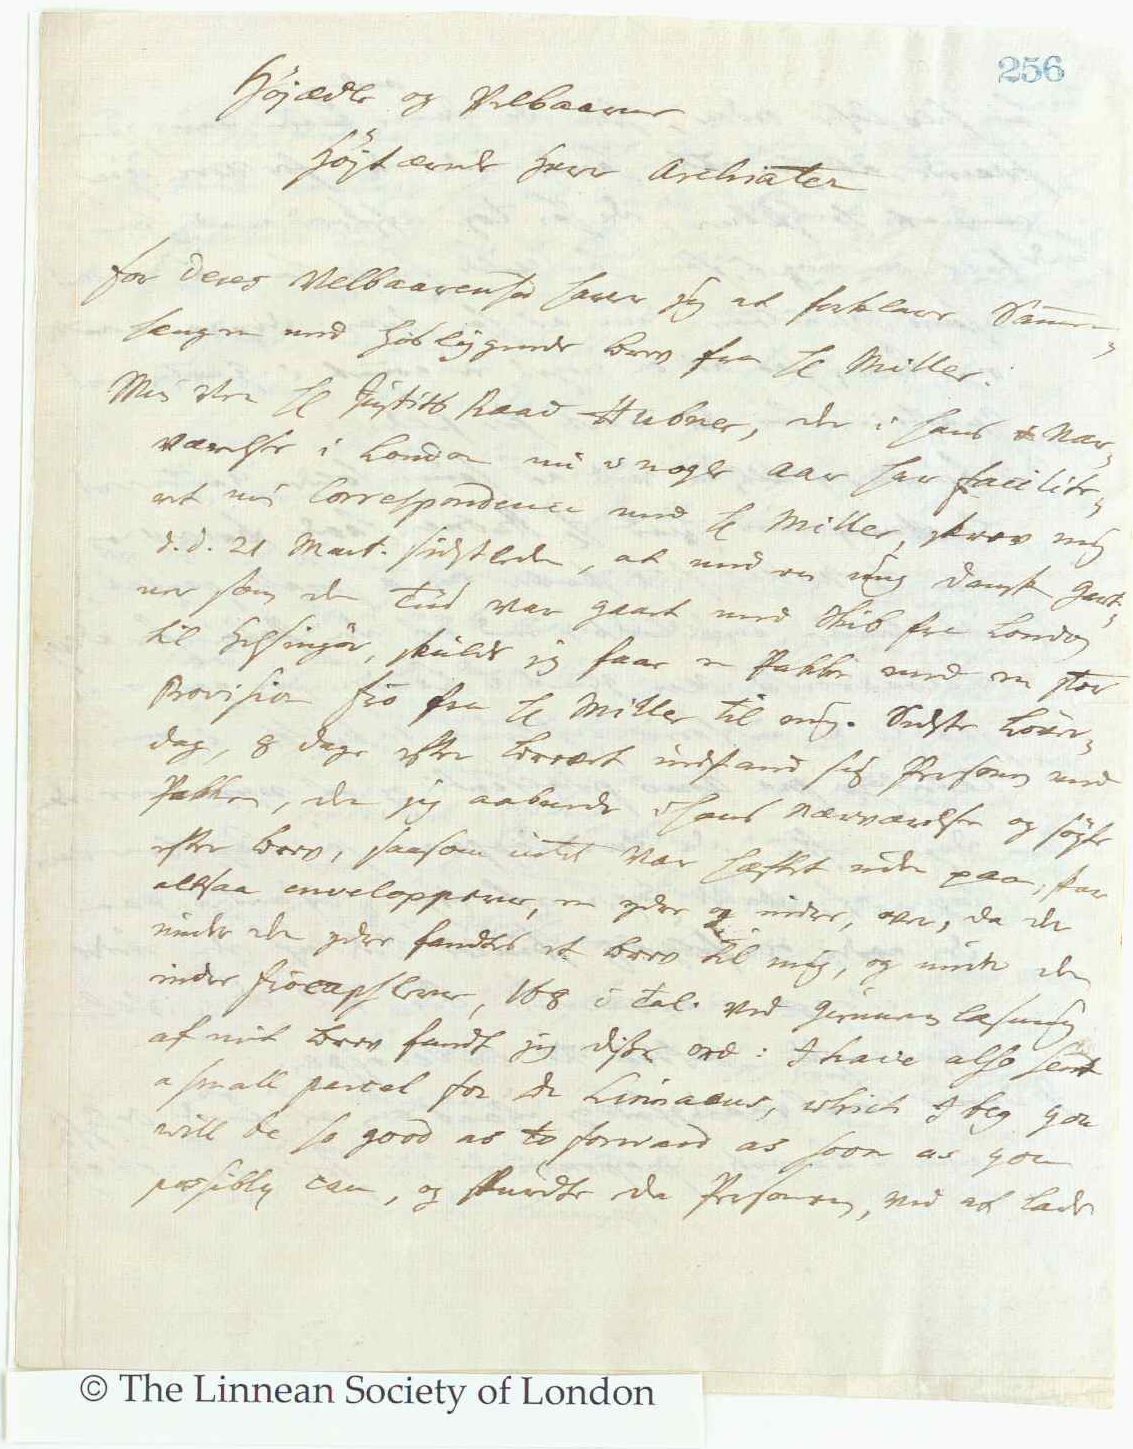 256
Höjædle og Velbaarne
Höjtærende Herr Archiater
For Deres Velbaarenhed haver jeg at forklare Sammen-
hængen med hoslÿgende brev fra H. Miller.
Min Ven H. Justits Raad Hubner, der i hans Nær-
værelse i London nu i nogle aar har facilite-
ret min Correspondence med H. Miller, skrev mig
d.d. 21 Mart. sidstleden, at med en ung dansk gart-
ner som den Tiid var gaaet med Skib fra London
til Helsingör, skulde jeg faae en Pakke med en stor
Provision fröe fra H. Miller til mig. Sidste Löver-
dag, 8 dage efter brevet indfand sig Personen med
Pakken, den jeg aabnede i hans Nærværelse og sögte
efter brev, saasom intet var hæftet uden paa,
altsaa envelopperne, en ydre og indre, da der
under den ydre fandtes et brev til mig, og inde den
indre fröecapslerne, 168 i Tal. Ved Giennemlæsning
af mit brev fandt jeg disse ord: I have also sent
a small parcel for Dr Linnaeus, which I beg you
will be so good as to forward as soon as you
possibly can, og spurdte da Personen, ved at lade
© The Linnean Society of London